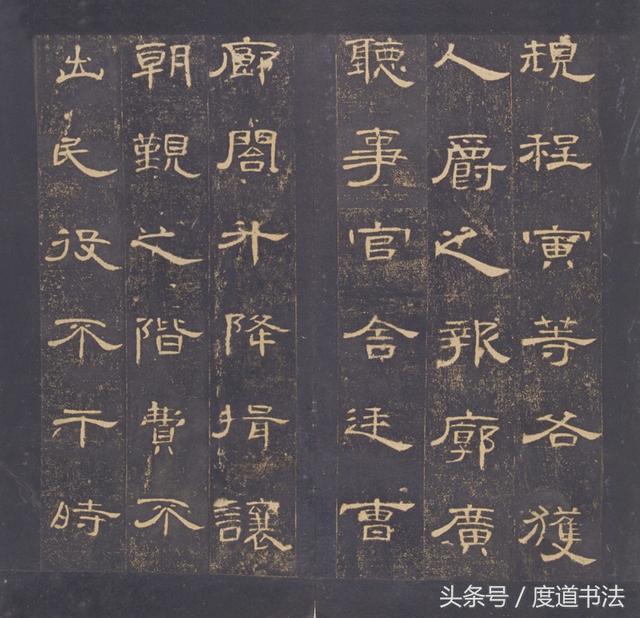 規程寅等各獲
人爵之報廓廣
聽事官舍廷曹
廊閣升降揖讓
朝覲之階費不
出民役不干時
头条号 / 度道书法